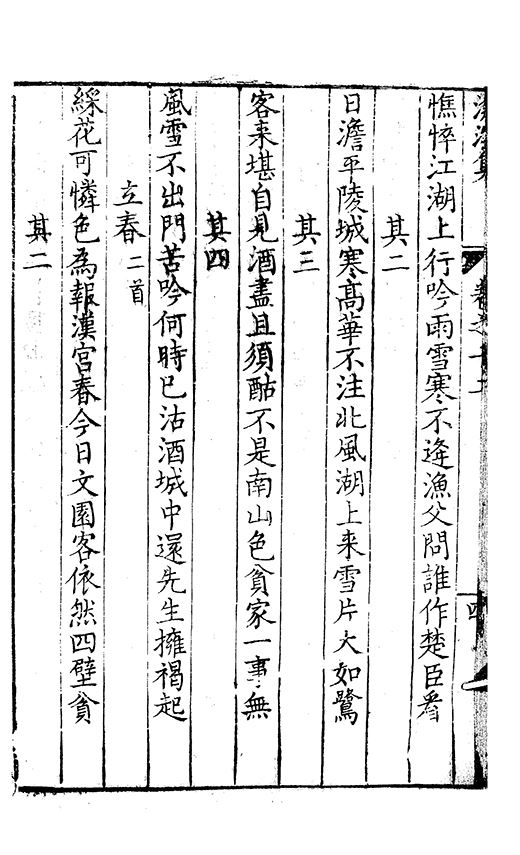 憔悴江湖上行吟雨雪寒不逢漁父問誰作楚臣看
其二
日澹平陵城寒高華不注北風湖上来雪片大如鷺
其三
客来堪自見酒盡且須酤不是南山色貧家一事無
其四
風雪不出門苦吟何時已沽酒城中還先生擁褐起
立春二首
綵花可憐色為報漢宮春今日文園客依然四壁貧
其二